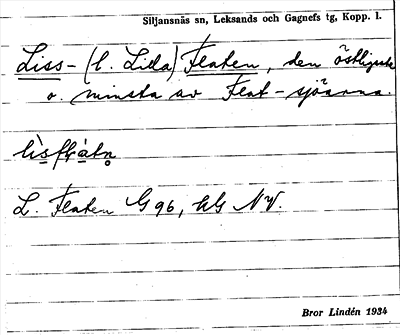 Siljansnäs sn, Leksands och Gagnefs tg, Kopp. l.
Liss- (l. Lilla) Flaten, den östligaste
o. minsta av Flat-sjöarna.
L. Flaten G 96, hG NV.
Bror Lindén 1934